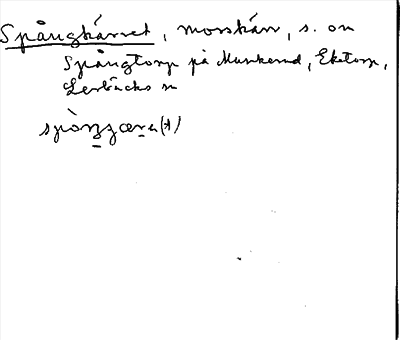 Spångkärret, mosskärr, s. om
Spångtorp på Munkerud, Eketorp,
Lerbäcks sn